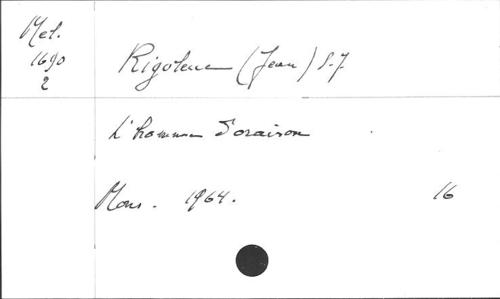 Mel.
1690
2
Rigoleuc (Jean) S.J.
L'homme d'oraison
Mons. 1964. 16